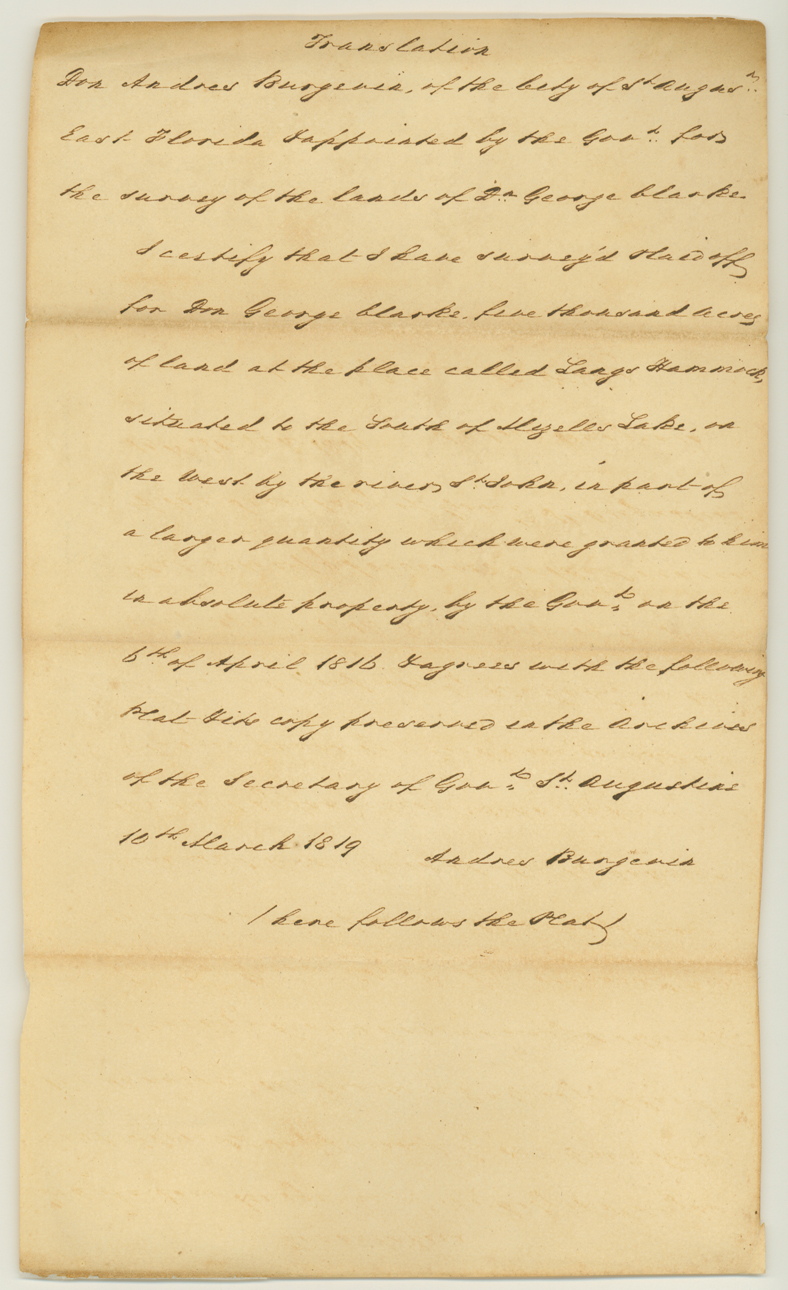 Translation
Don Andres Burgevin, of the City of St. Augusn.
East Florida & appointed by the Govt. for
the survey of the lands of Dn. George Clarke
I certify that I have survey'd & laid off
for Don George Clarke, five thousand acres
of land at the place called Langs Hammock,
situated to the South of Mizells Lake, on
the West by the river St. John, in part of
a larger quantity which were granted to him
in absolute property, by the Govt. on the
6th of April 1816 & agrees with the following
Plat & its copy preserved in the Archives
of the Secretary of Govt. St. Augustine
10th March 1819
Andres Burgevin
(here follows the Plat)